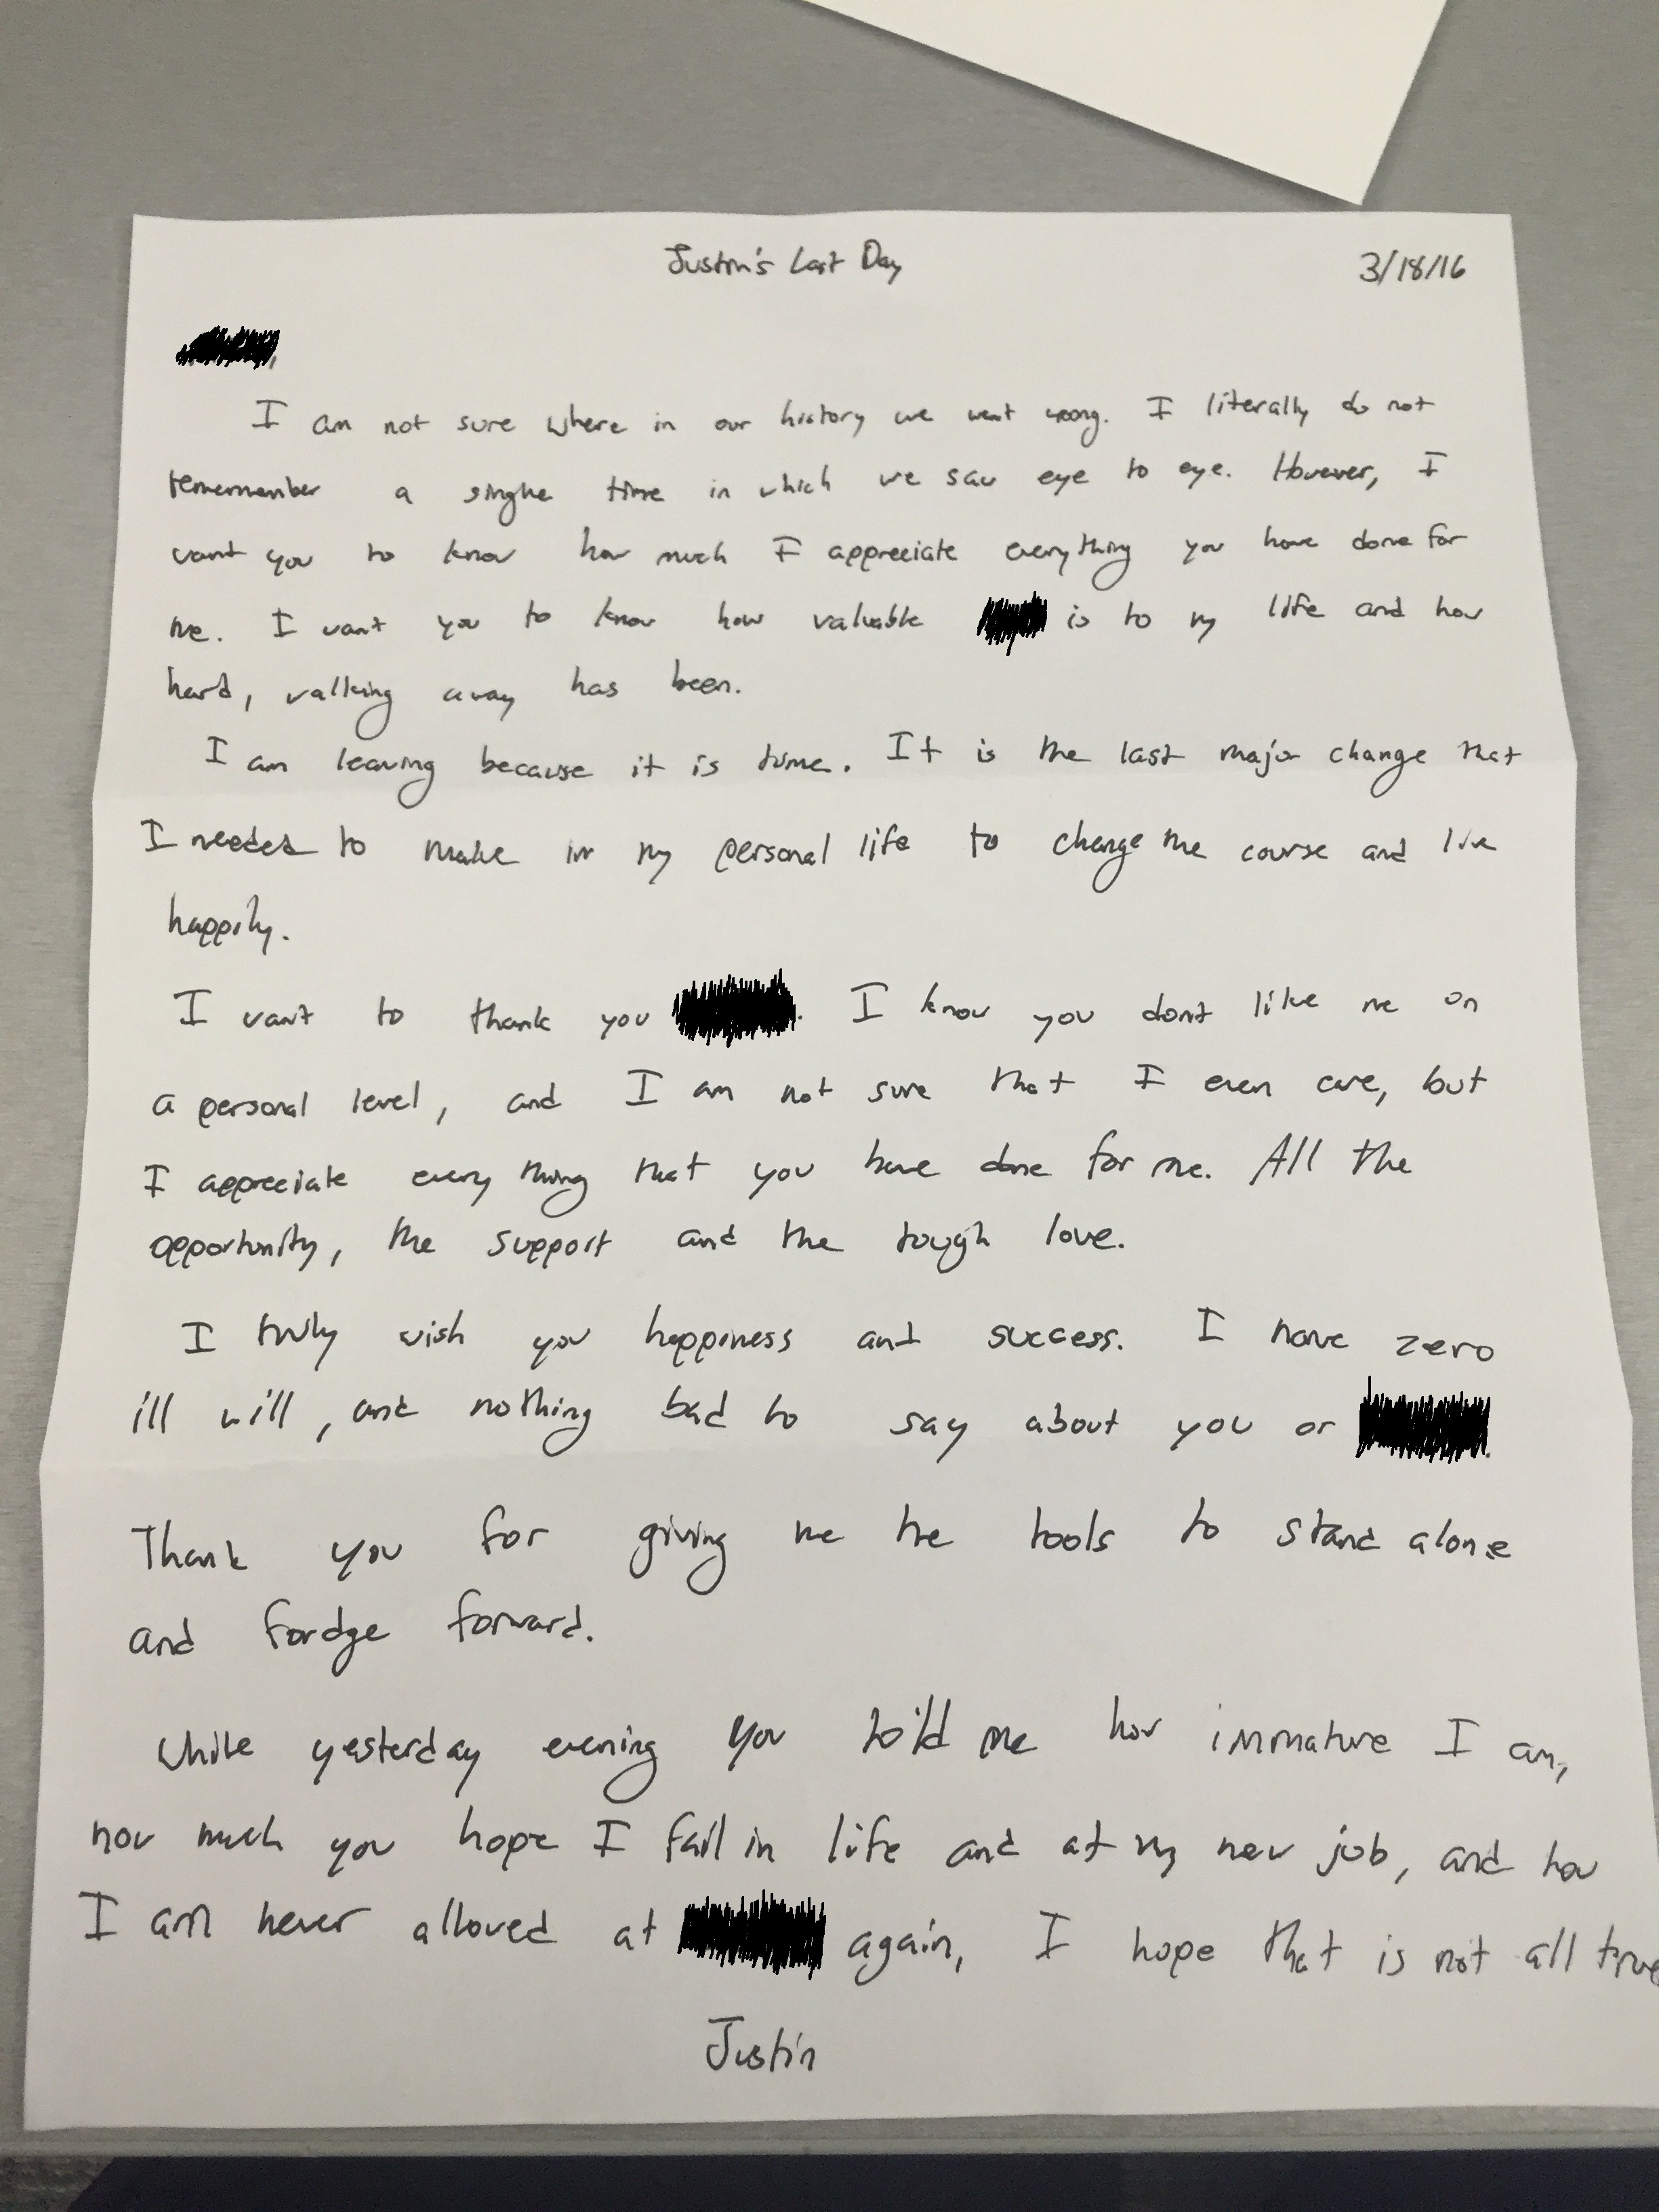 Justin's Last Day 3/18/16
,
I am not sure where in our history we went wrong. I literally do not
rememember a singhe time in which we saw eye to eye. However, I
want you to know how much I appreciate everything you have done for
me. I want you to know how valuable is to my life and how
hard, walking away has been.
I am leaving because it is time. It is the last major change that
I needed to make in my personal life to change the course and live
happily.
I want to thank you . I know you dont like me on
a personal level, and I am not sure that I even care, but
I appreciate every thing that you have done for me. All the
opportunity, the support and the tough love.
I truly wish you happiness and success. I have zero
ill will, and nothing bad to say about you or .
Thank you for giving me the tools to stand alone
and fordge forward.
While yesterday evening you told me how immature I am,
how much you hope I fail in life and at my new job, and how
I am never allowed at again, I hope that is not all true
Justin